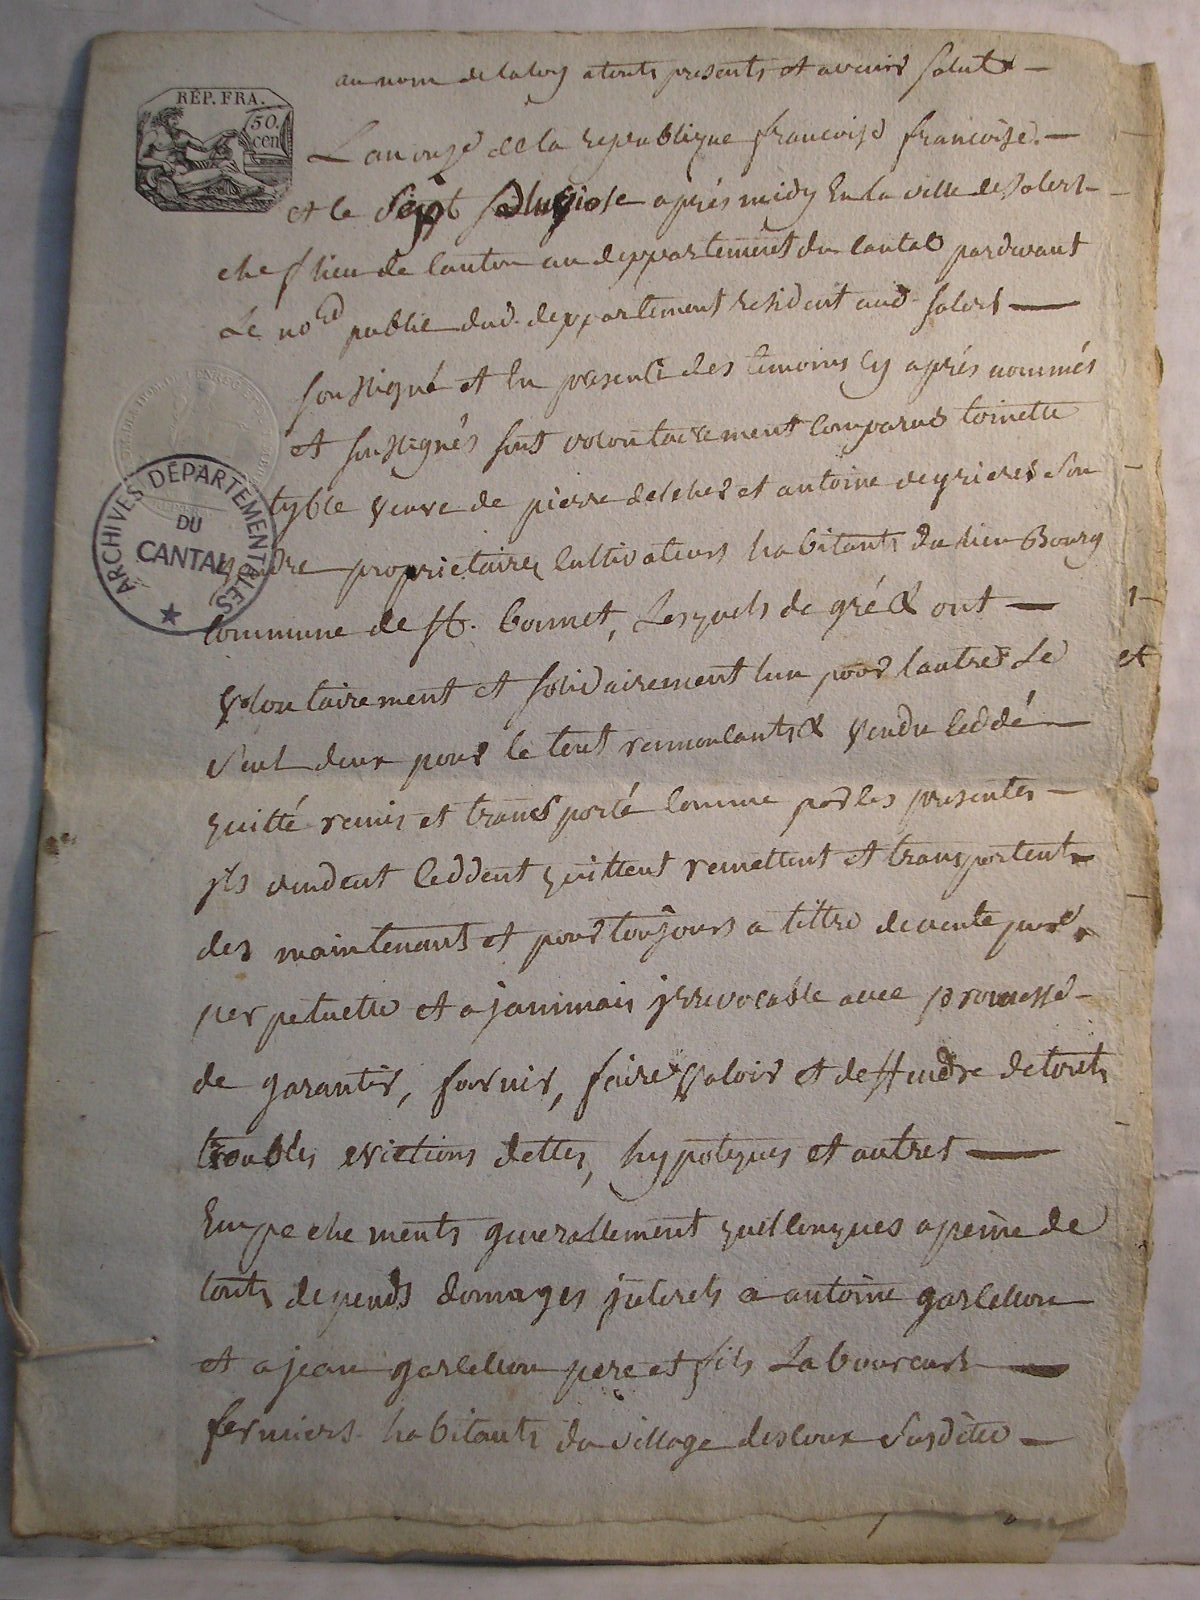 au nom de la loy a touts presents et avenir salut
RÉP. FRA.
50 cen
L'an onze de la republique francoise francoise.
et le sept pluviose après midy En la ville de Salers
chef lieu de canton au deppartement du Cantal pardevant
Le no.re public dud. deppartement resident aud. Salers
soussigné et En presence des temoins Cy après nommés
et soussignés sont volontairement Comparus toinette
tyble veuve de pierre delcher et antoine deyrieres son
gendre proprietaires Cultivateurs habitants du lieu Bourg
Commune de St. bonnet, Lesquels de gré & ont
volontairement et solidairement l'un pour lautre Le
seul deux pour le tout renoncants & vendu Ceddé
quitté remis et transporté Comme par les presentes
yls vendent Ceddent quittent remettent et transportent
des maintenant et pour toujours a tittre de vente pure,
perpetuelle et a jammais yrrevocable avec promesse
de garantir, fournir, faire valoir et deffendre de touts
troubles evictions dettes, hypoteques et autres
Empechements generallement quelconques a peine de
touts depends domages jnterets a antoine
et a jean pere et fils Laboureurs
fermiers habitants du village susditte
et
ARCHIVES DÉPARTEMENTALES
DU
CANTAL